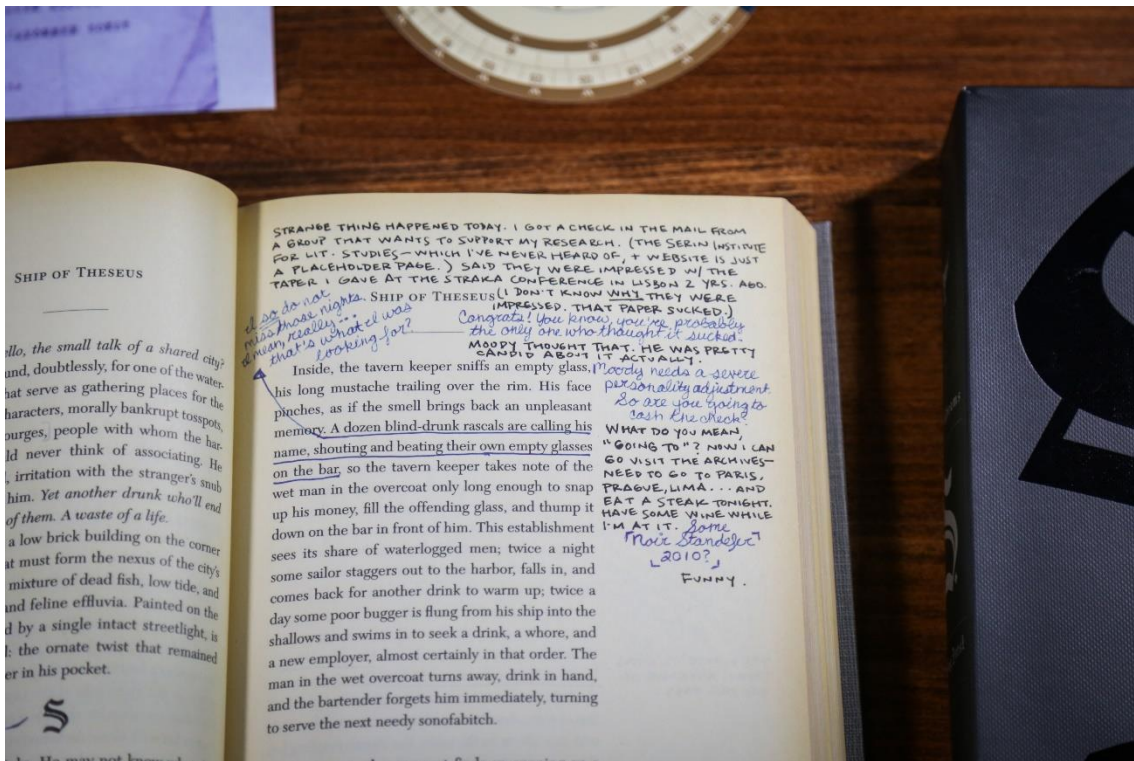 SHIP OF THESEUS
ello, the small talk of a shared city?
und, doubtlessly, for one of the water-
hat serve as gathering places for the
haracters, morally bankrupt tosspots,
ourges, people with whom the har-
ld never think of associating. He
, irritation with the stranger's snub
him. Yet another drunk who'll end
of them. A waste of a life.
a low brick building on the corner
at must form the nexus of the city's
mixture of dead fish, low tide, and
and feline effluvia. Painted on the
d by a single intact streetlight, is
l: the ornate twist that remained
er in his pocket.
S
STRANGE THING HAPPENED TODAY. I GOT A CHECK IN THE MAIL FROM
A GROUP THAT WANTS TO SUPPORT MY RESEARCH. (THE SERIN INSTITUTE
FOR LIT. STUDIES – WHICH I'VE NEVER HEARD OF, + WEBSITE IS JUST
A PLACEHOLDER PAGE.) SAID THEY WERE IMPRESSED W/ THE
PAPER I GAVE AT THE STRAKA CONFERENCE IN LISBON 2 YRS. AGO.
(I DON'T KNOW WHY THEY WERE
IMPRESSED. THAT PAPER SUCKED.)
SHIP OF THESEUS
I so do not
miss those nights.
I mean, really...
that's what I was
looking for?
Congrats! You know, you're probably
the only one who thought it sucked.
MOODY THOUGHT THAT. HE WAS PRETTY
CANDID ABOUT IT ACTUALLY.
Moody needs a severe
personality adjustment.
So are you going to
cash the check?
WHAT DO YOU MEAN,
"GOING TO"? NOW I CAN
GO VISIT THE ARCHIVES–
NEED TO GO TO PARIS,
PRAGUE, LIMA... AND
EAT A STEAK TONIGHT.
HAVE SOME WINE WHILE
I'M AT IT. Some
Noir Standefer
2010?
FUNNY.
Inside, the tavern keeper sniffs an empty glass,
his long mustache trailing over the rim. His face
pinches, as if the smell brings back an unpleasant
memory. A dozen blind-drunk rascals are calling his
name, shouting and beating their own empty glasses
on the bar, so the tavern keeper takes note of the
wet man in the overcoat only long enough to snap
up his money, fill the offending glass, and thump it
down on the bar in front of him. This establishment
sees its share of waterlogged men; twice a night
some sailor staggers out to the harbor, falls in, and
comes back for another drink to warm up; twice a
day some poor bugger is flung from his ship into the
shallows and swims in to seek a drink, a whore, and
a new employer, almost certainly in that order. The
man in the wet overcoat turns away, drink in hand,
and the bartender forgets him immediately, turning
to serve the next needy sonofabitch.